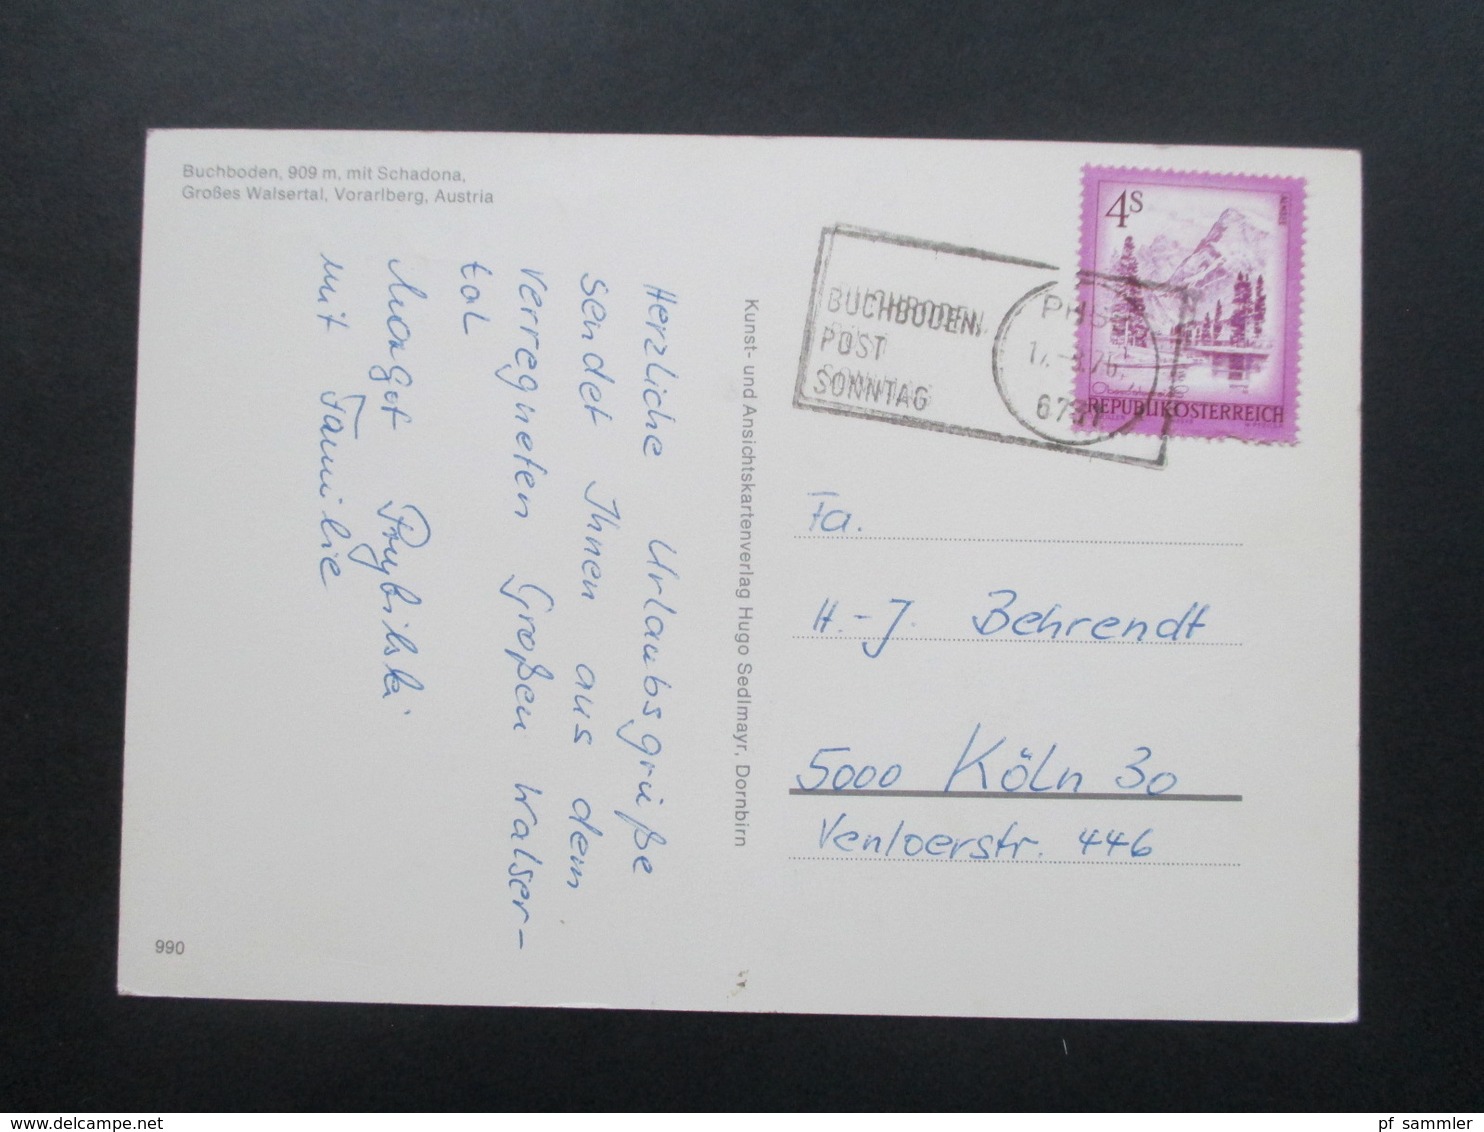 Buchboden, 909 m, mit Schadona,
Großes Walsertal, Vorarlberg, Austria
Herzliche Urlaubsgrüße
sendet Ihnen aus dem
verregneten Großen Walser-
tal
Margot Prybilski
mit Familie
990
Kunst- und Ansichtskartenverlag Hugo Sedlmayr, Dornbirn
BUCHBODEN,
POST
SONNTAG
4S
ALMSEE
REPUBLIK ÖSTERREICH
Fa.
H.-J. Behrendt
5000 Köln 30
Venloerstr. 446
www.delcampe.net
pf_sammler